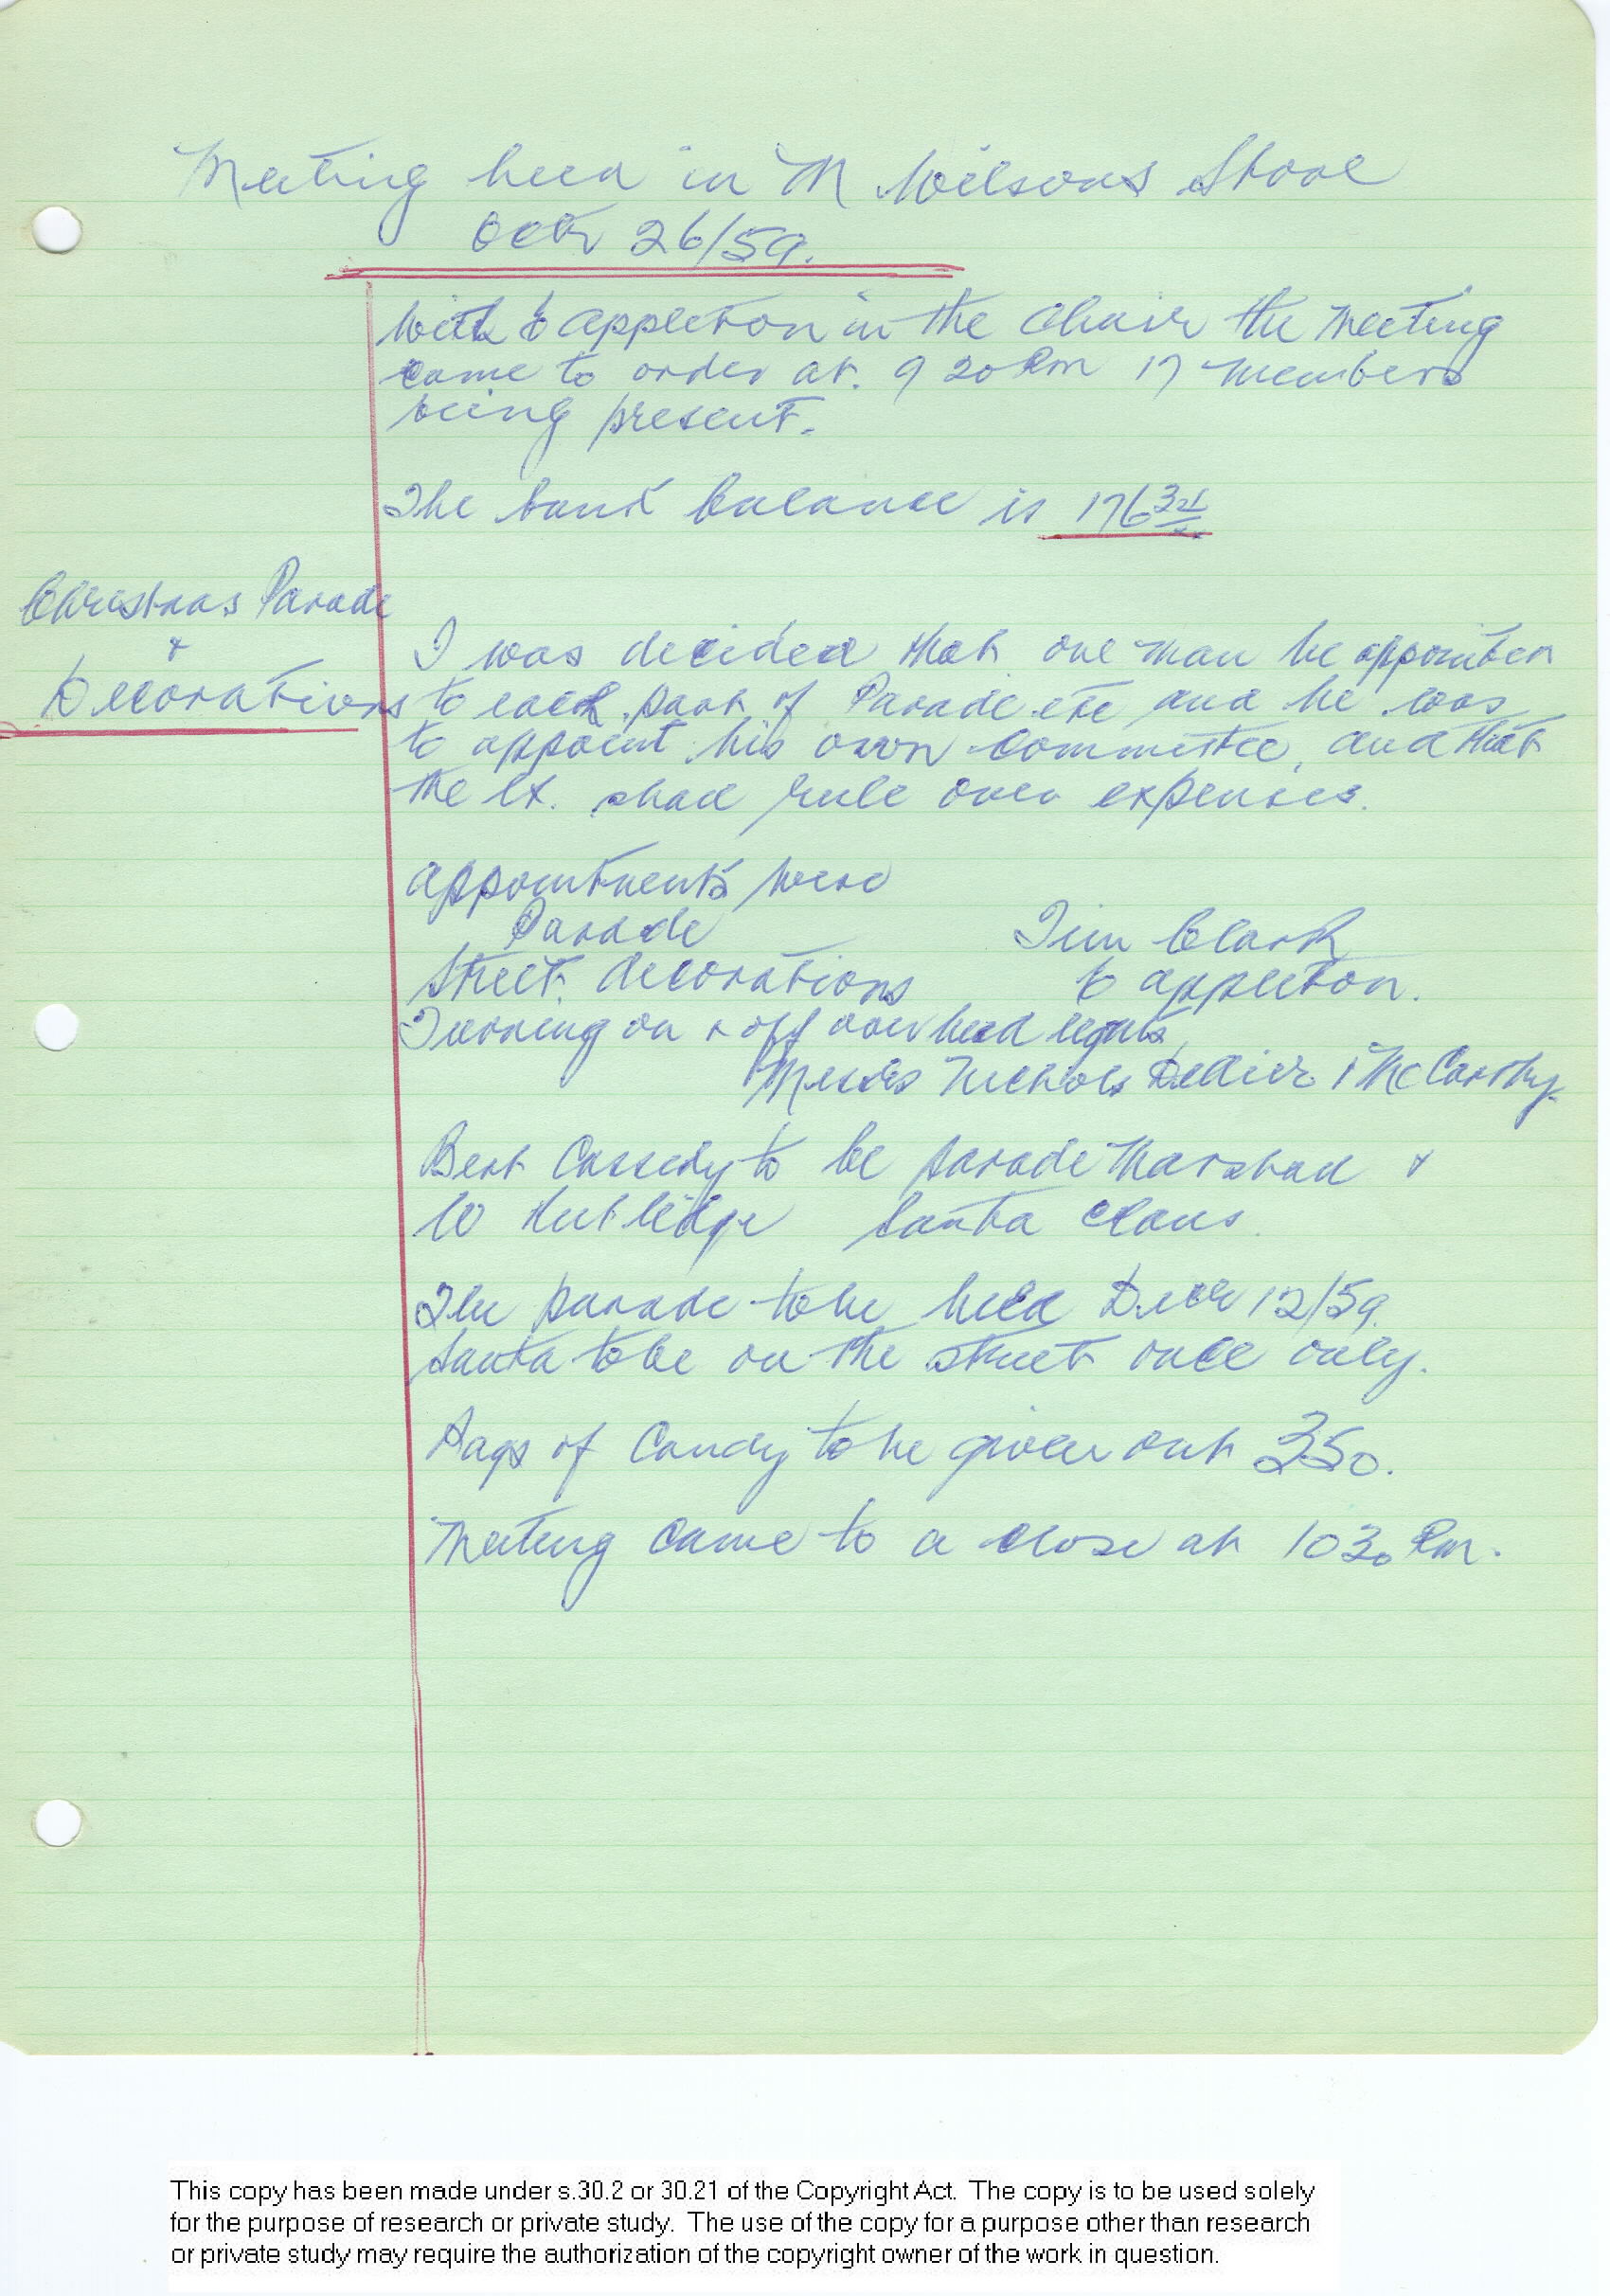 Meeting held in M Wilsons Store
Octr 26/59.
With E Appleton in the Chair the meeting
came to order at. 9 20 Pm 17 members
being present.
The bank balance is 176
Christmas Parade
&
Decorations
I was decided that one man be appointed
to each part of Parade etc and he was
to appoint his own committee, and that
the Ex. shall rule over expenses.
appointments were
Parade Jim Clark
Street decorations E Appleton.
Turning on & off overhead lights
Messrs Nichols McCarthy
Bert Cassedy to be parade Marshall &
W Rutlidge Santa Claus.
The parade to be held Decbr 12/59.
Santa to be on the street once only.
Bags of Candy to be given out 350.
Meeting came to a close at 1030 Pm.
This copy has been made under s.30.2 or 30.21 of the Copyright Act. The copy is to be used solely
for the purpose of research or private study. The use of the copy for a purpose other than research
or private study may require the authorization of the copyright owner of the work in question.